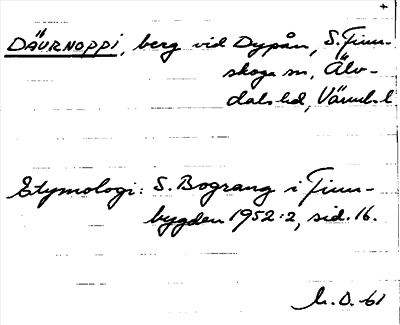 DÄURNOPPI, berg vid Dypån, S. Finn-
skoga sn, Älv-
dals hd, Värml. l.
Etymologi: S. Bograng i Finn-
bygden 1952:2, sid. 16.
M.O. -61